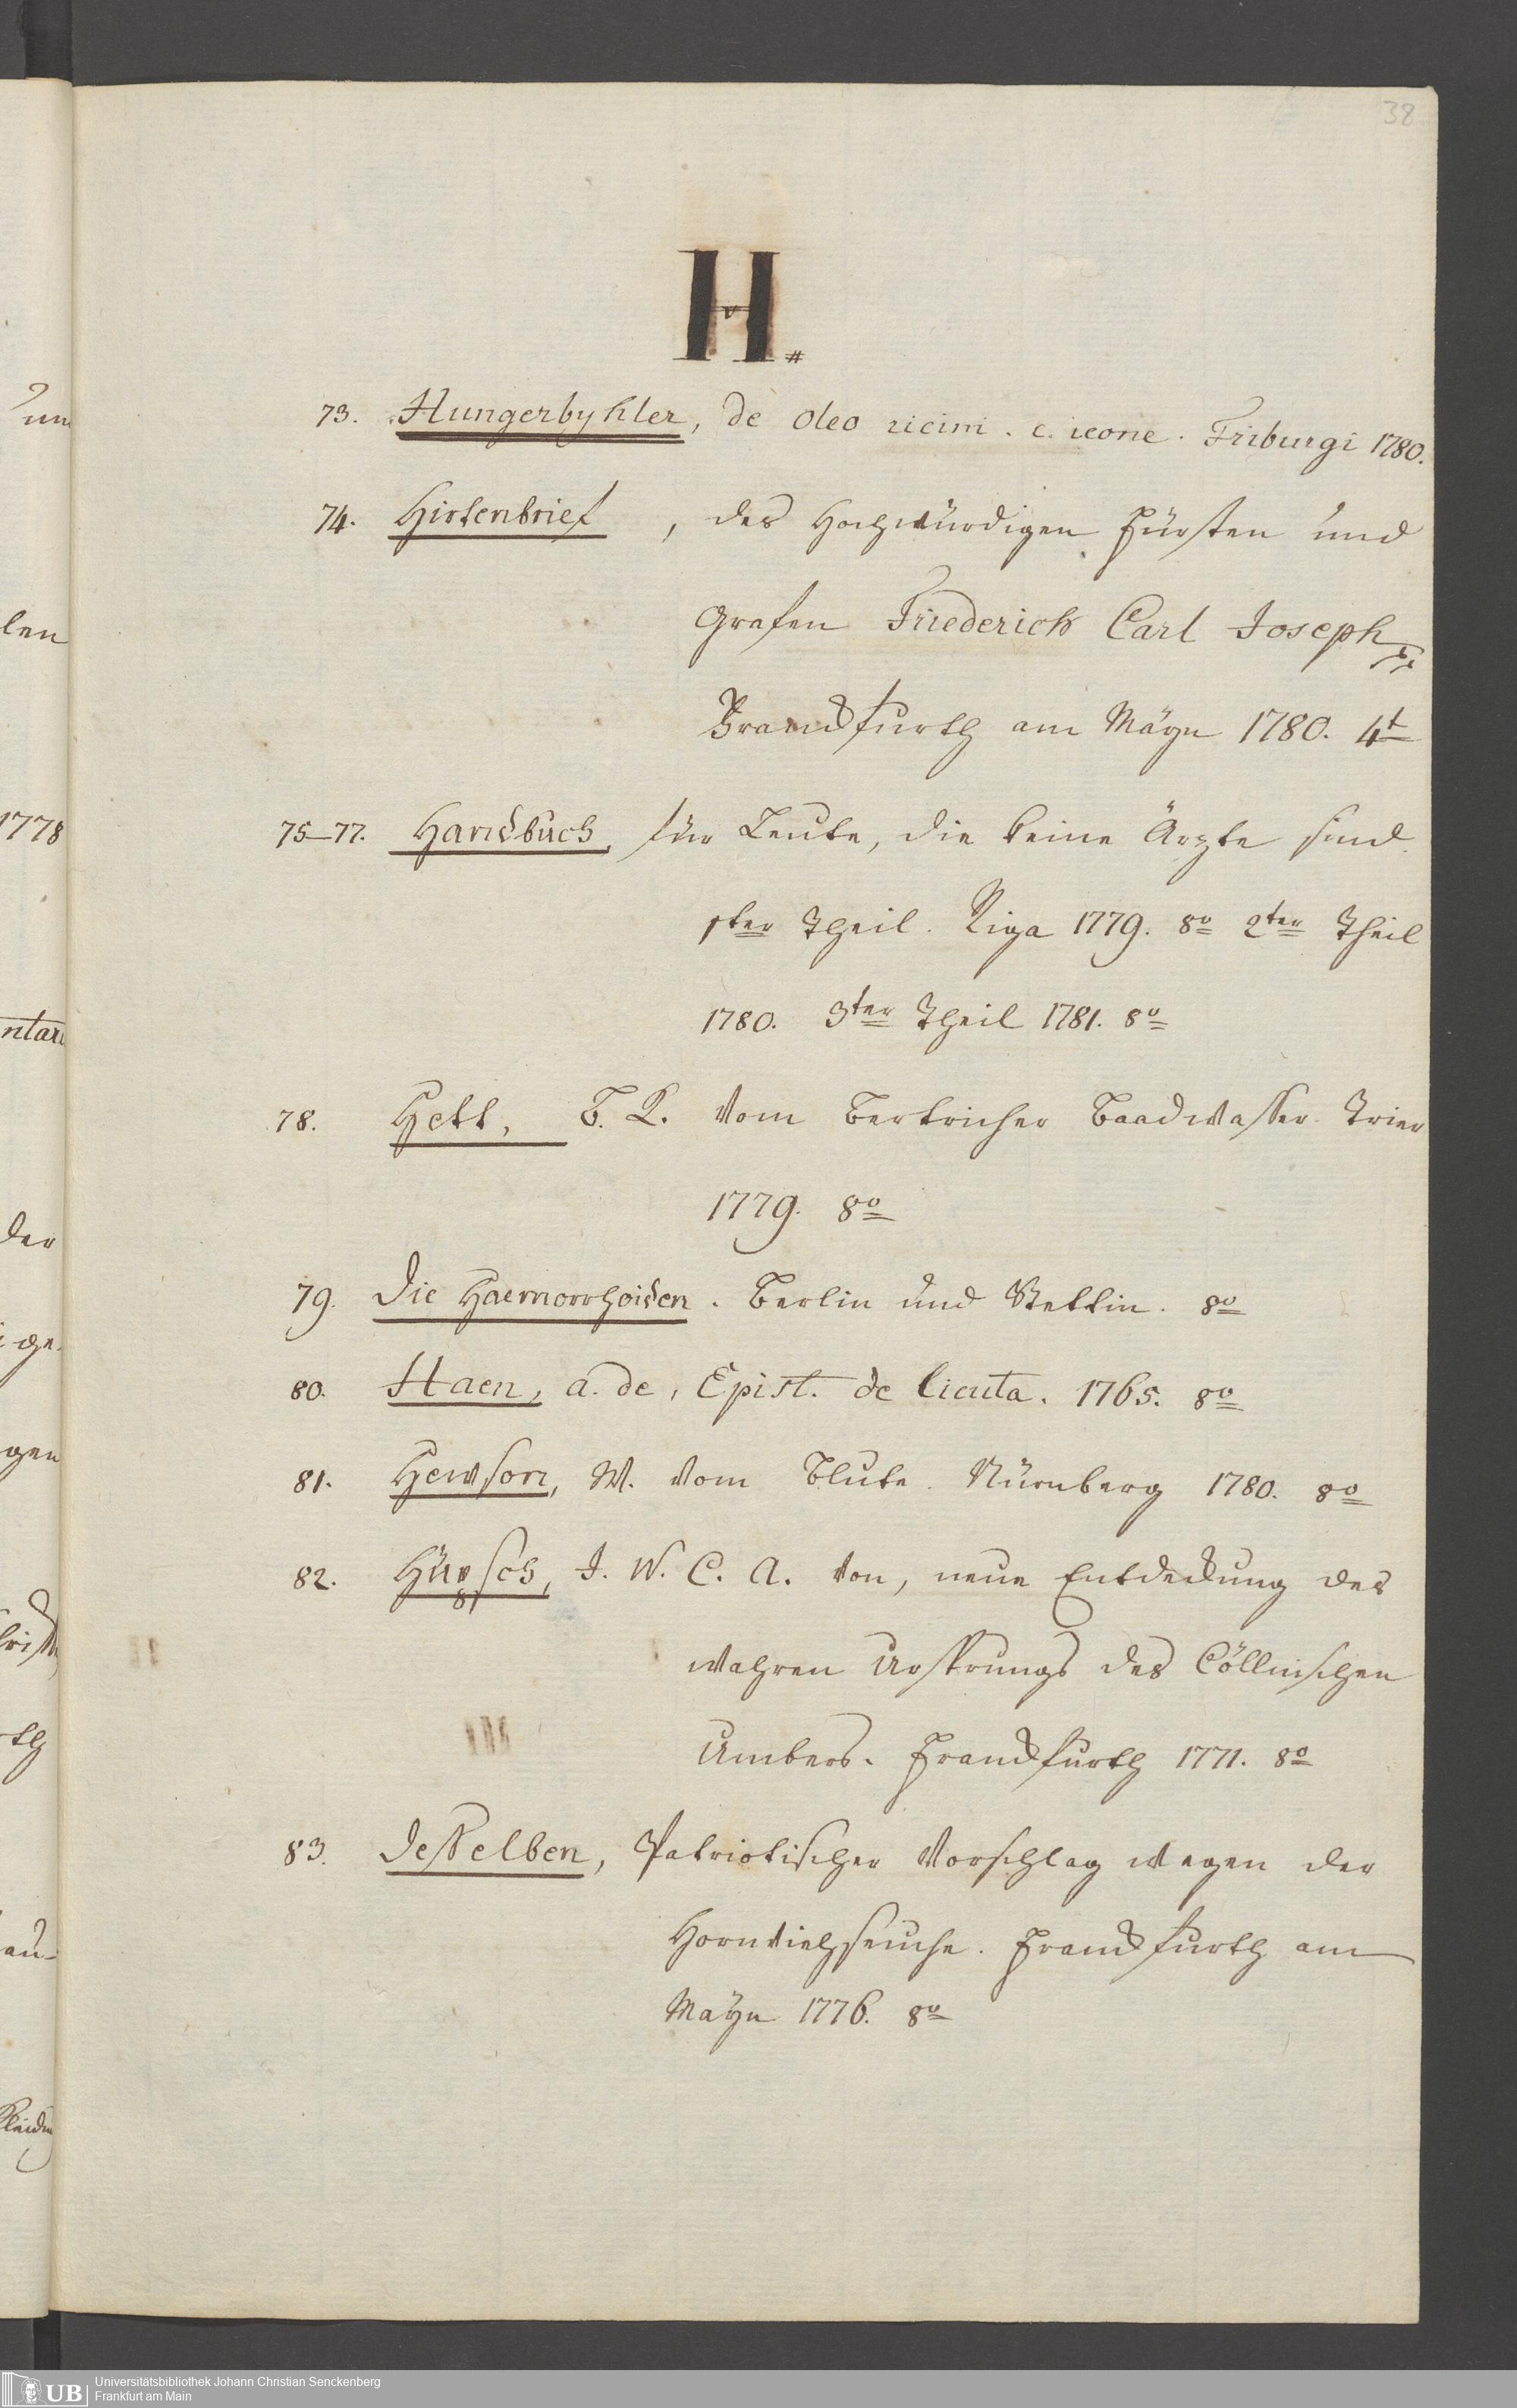 38
H.
73. Hungerbyhler, de oleo ricini. c. icone. Friburgi 1780.
74. Hirtenbrief, des Hochwürdigen Fürsten und
Grafen Friederich Carl Joseph
Franckfurth am Mäyn 1780. 4t
75–77. Handbuch, für Leute, die keine Ärzte sind.
1ter Theil. Riga 1779. 8o 2ter Theil
1780. 3ter Theil 1781. 8o
78. Hett, vom Bertricher Baadwasser. Trier
1779. 8o
79. Die Haemorrhoiden. Berlin und Stettin. 8o
80. Haen, a. de, Epist. de Cicuta. 1765. 8o
81. Hewson, W. vom Blute. Nürnberg 1780. 8o
82. Hüpsch, J. W. C. A. von, neue Entdeckung des
wahren Ursprungs des Cöllnischen
Umbers. Franckfurth 1771. 8o
83. Desselben, Patriotischer Vorschlag wegen der
Hornviehseuche. Franckfurth am
Mäyn 1776. 8o
um
len
1778
ntari
der
ige
gen
th
au-
UB
Universitätsbibliothek Johann Christian Senckenberg
Frankfurt am Main